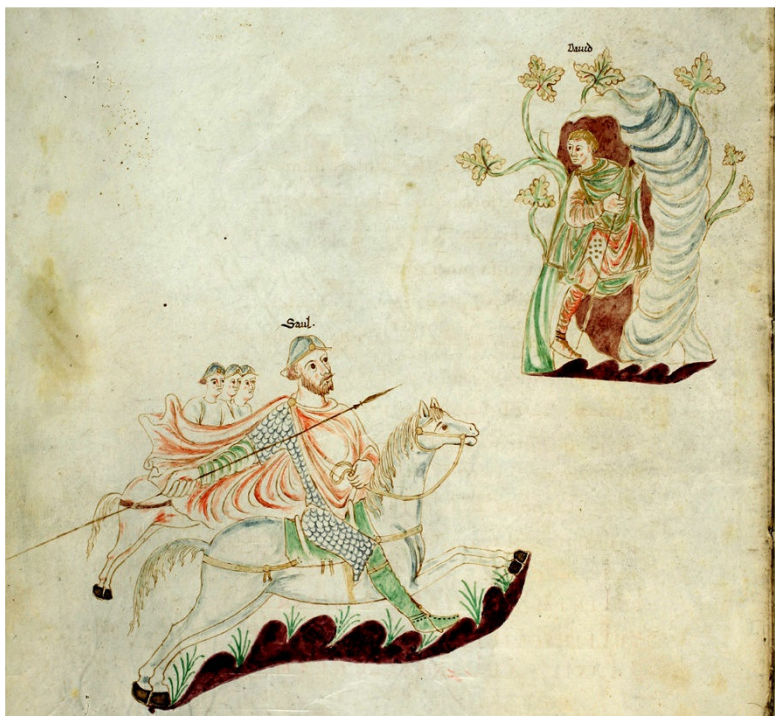 Dauid
Saul·